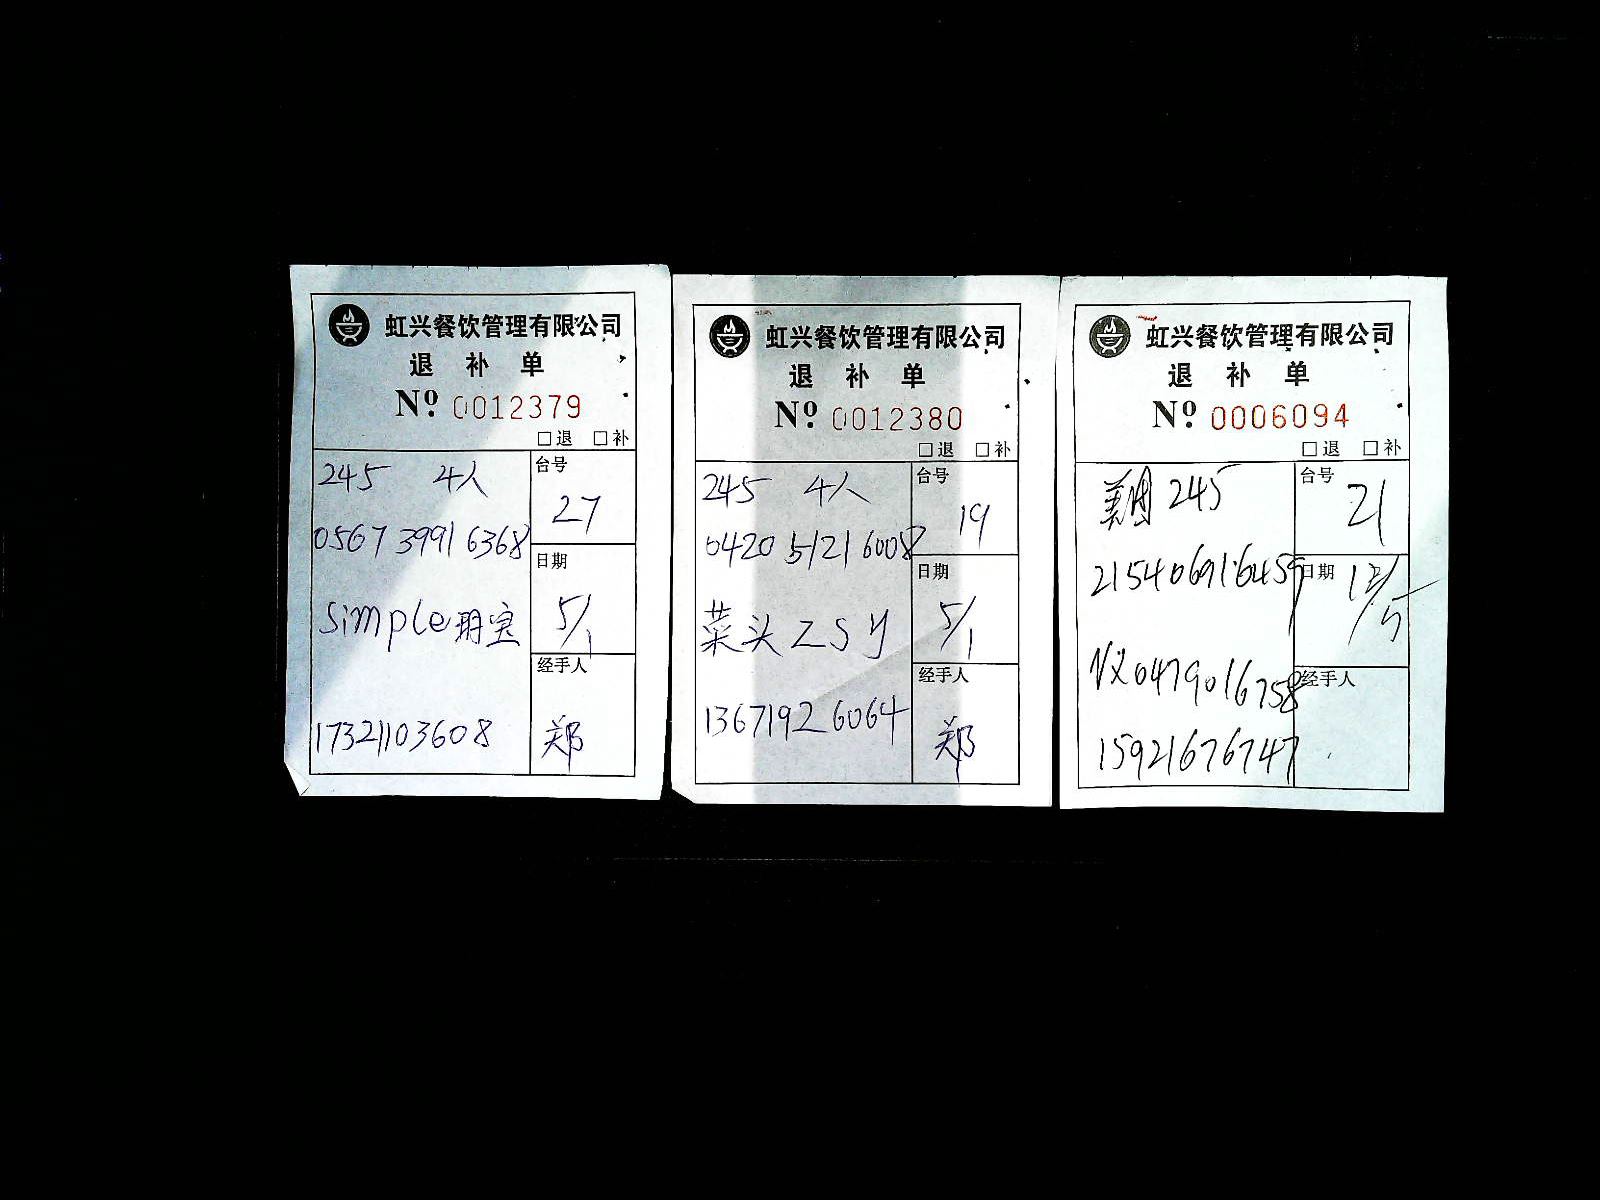 虹兴餐饮管理有限公司
退 补 单
Nº 0012379
□退 □补
245 4人
0567 3991 6368
simple玥宝
17321103608
台号
27
日期
5/1
经手人
郑
虹兴餐饮管理有限公司
退 补 单
Nº 0012380
□退 □补
245 4人
0420 5121 6008
菜头ZSY
13671926064
台号
19
日期
5/1
经手人
郑
虹兴餐饮管理有限公司
退 补 单
Nº 0006094
□退 □补
美团 245
215406916459
0479016758
15921676747
台号
21
日期
经手人